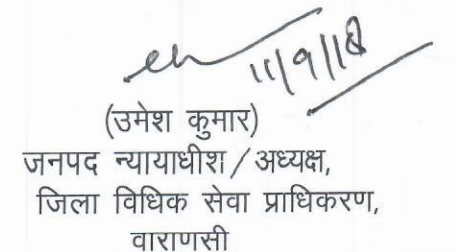 11/9/18
(उमेश कुमार)
जनपद न्यायाधीश/अध्यक्ष,
जिला विधिक सेवा प्राधिकरण,
वाराणसी